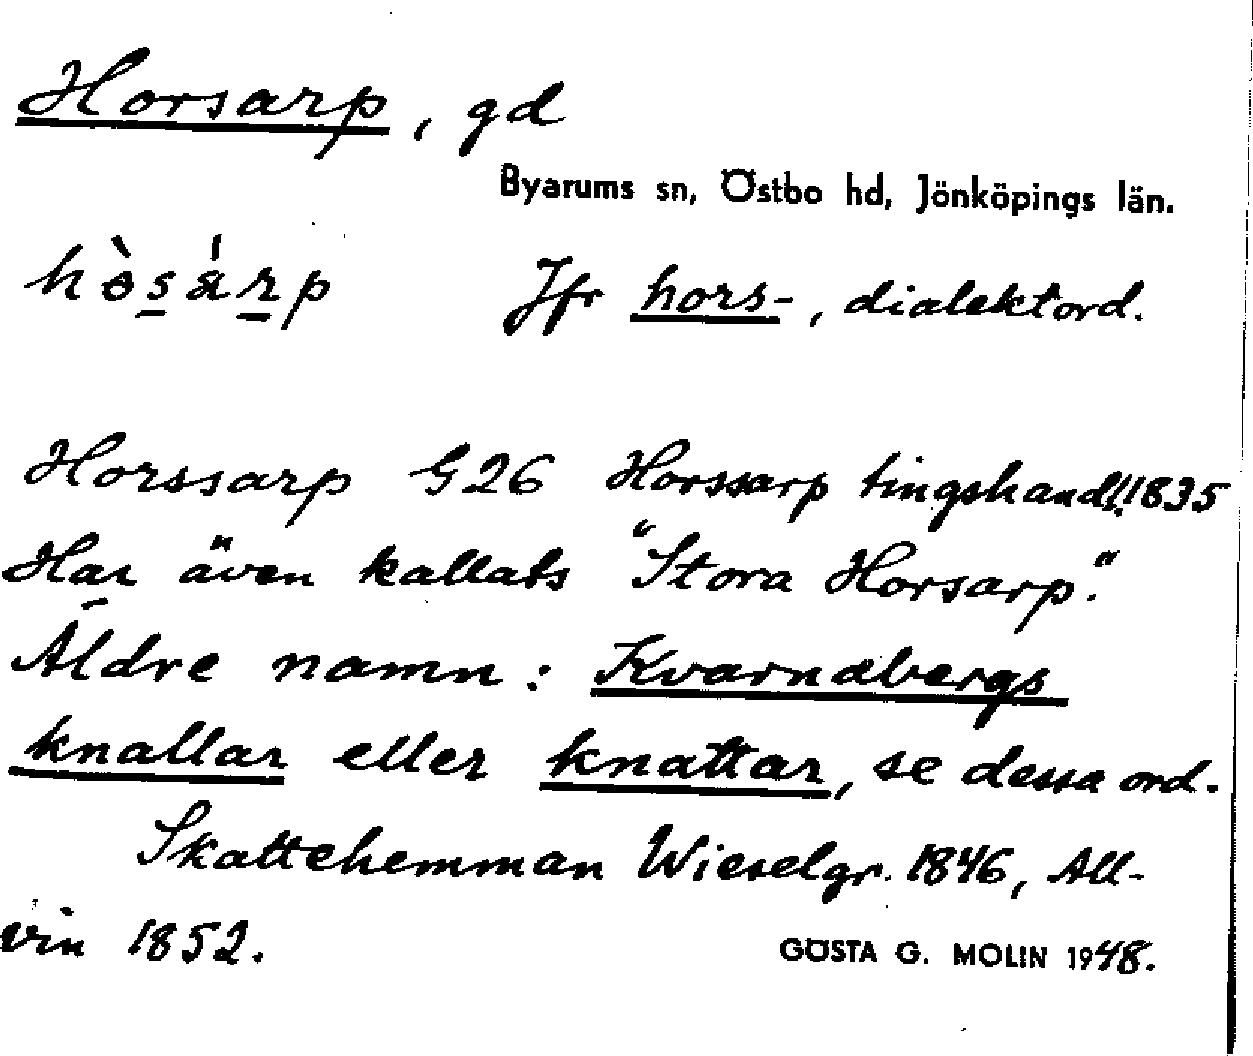 Horsarp, gd
Byarums sn, Östbo hd, Jönköpings län.
hòsárp Jfr hors-, dialektord.
Horssarp G26 Horssarp tingshandl. 1835
Har även kallats "Stora Horsarp".
Äldre namn: Kvarnabergs
knallar eller knattar, se dessa ord.
Skattehemman Wieselgr. 1846, All-
vin 1852.
GÖSTA G. MOLIN 1948.